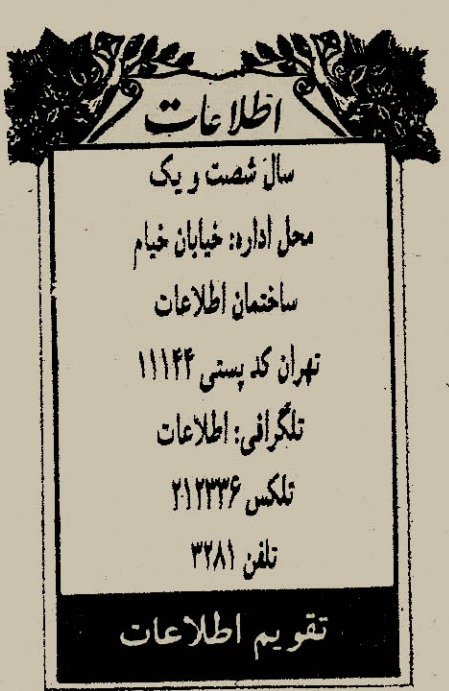 اطلاعات
سال شصت و یک
محل اداره: خیابان خیام
ساختمان اطلاعات
تهران کد پستی ۱۱۱۴۴
تلگرافی: اطلاعات
تلکس ۲۱۲۳۳۶
تلفن ۳۲۸۱
تقویم اطلاعات